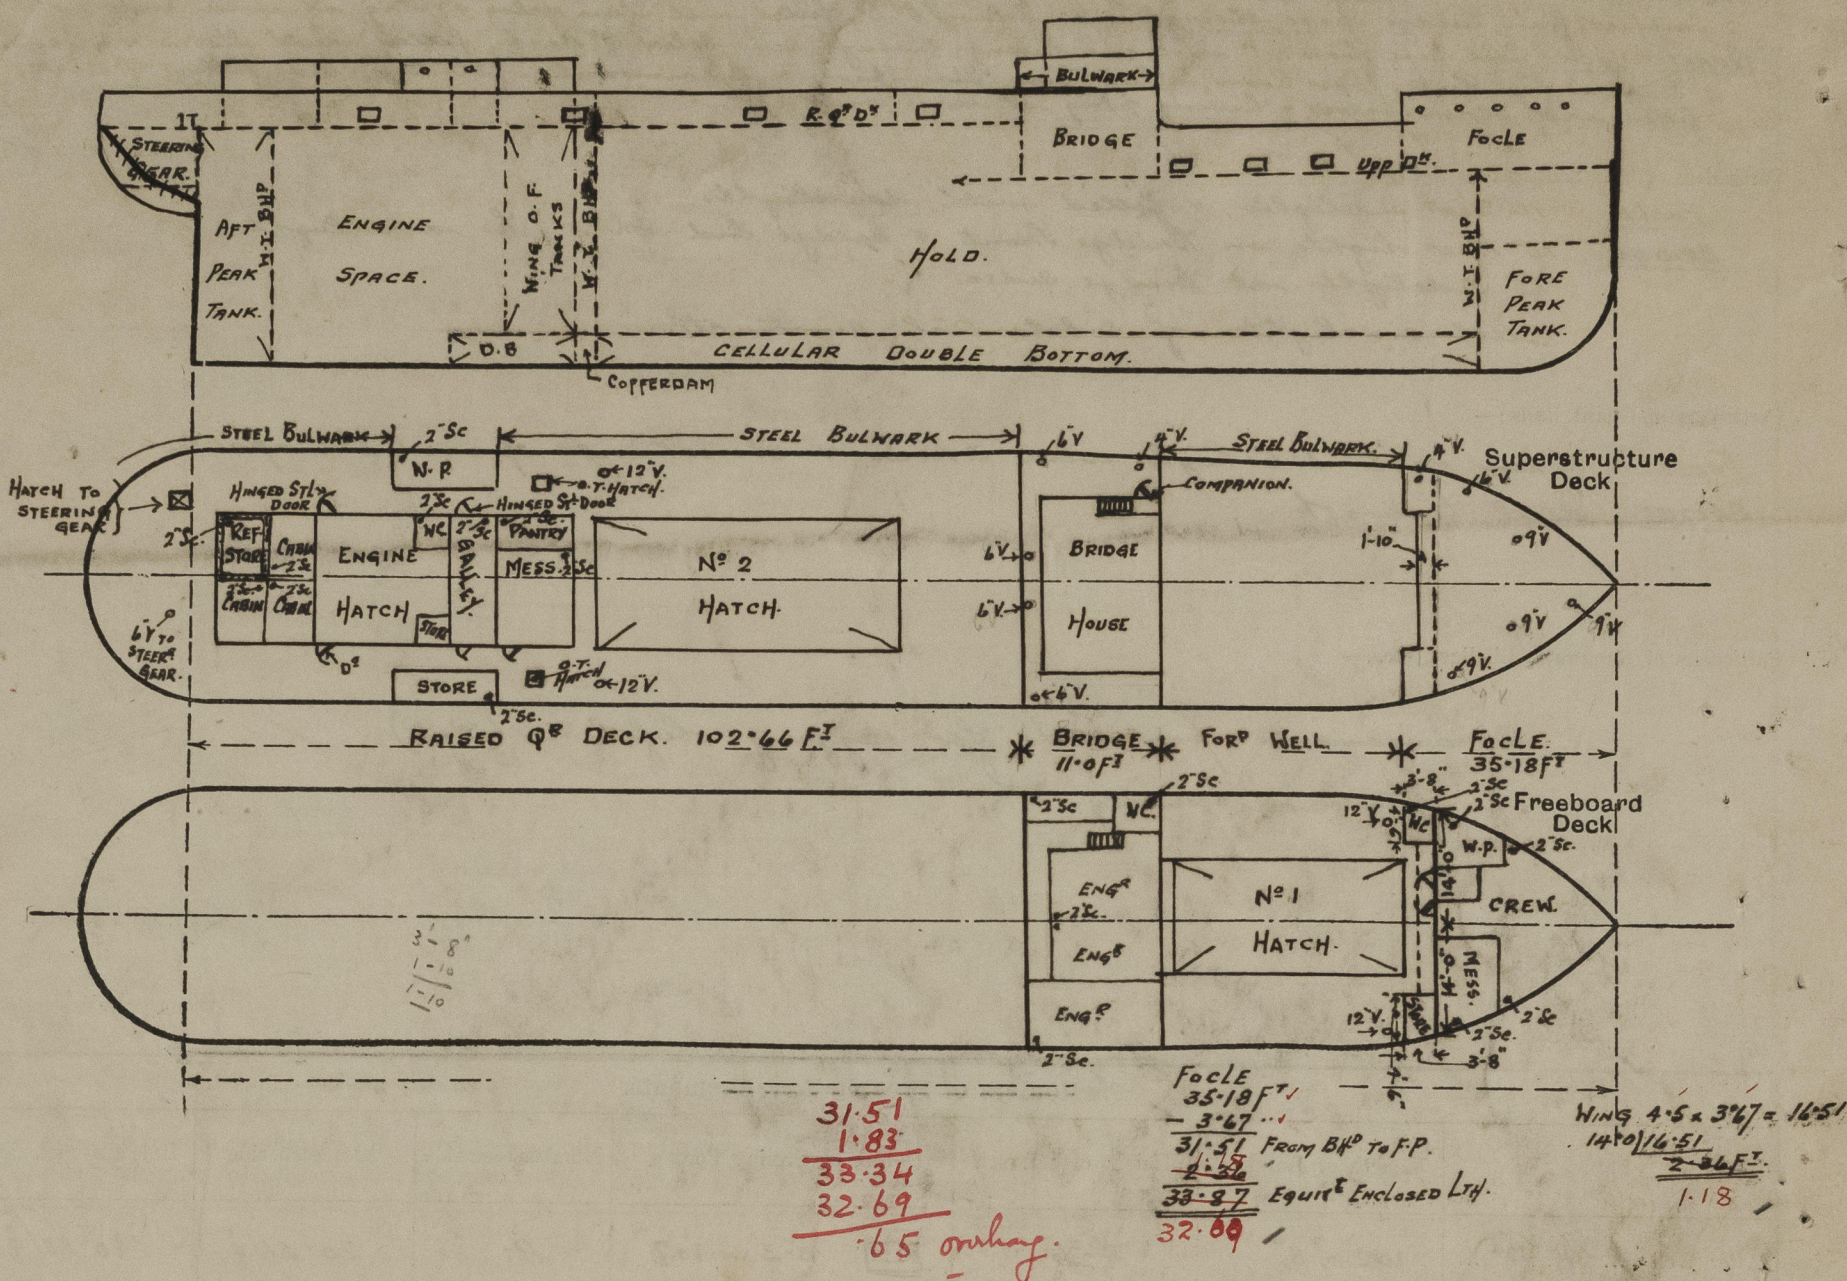 BULWARK
R. Qᴿ Dᴷ
BRIDGE
FOCLE
UPP Dᴷ.
STEERING
GEAR.
AFT
PEAK
TANK.
W.T. BHD
ENGINE
SPACE.
WING O.F.
TANKS
W.T. BHD
HOLD.
W.T. BHD
FORE
PEAK
TANK.
D.B
CELLULAR DOUBLE BOTTOM.
COFFERDAM
STEEL BULWARK
2" Sc
STEEL BULWARK
6"V
4"V.
STEEL BULWARK.
4"V.
Superstructure
Deck
6"V.
HATCH TO
STEERING
GEAR
HINGED STL
DOOR
W.P.
12"V.
O.T. HATCH.
2"Sc
HINGED STL DOOR
COMPANION.
2"Sc.
REF
STORE
CABIN
2"Sc
ENGINE
HATCH
WC
2"Sc
GALLEY.
2"Sc.
PANTRY
MESS.
2"Sc
Nº 2
HATCH.
6"V
6"V.
BRIDGE
HOUSE
1'-10"
9"V
9"V
9"V
9"V.
2"Sc.
CABIN
2"Sc
CABIN
STORE
6"V TO
STEERᴳ
GEAR.
Dᴿ
STORE
2"Sc.
O.T.
HATCH
12"V.
6"V.
RAISED Qᴿ DECK. 102.66 Fᵀ
BRIDGE
11.0 Fᵀ
FORᴰ WELL.
FOCLE.
35.18 Fᵀ
2"Sc
WC.
2"Sc
3'-8"
2"Sc
2"Sc
Freeboard
Deck
12"V.
WC
W.P.
2"Sc.
14.0
ENGᴿ
2"Sc.
ENGᴿ
ENGᴿ
2"Sc.
Nº 1
HATCH.
CREW.
14.0
MESS.
STORE
12"V.
2"Sc
2"Sc.
3'-8"
4'-6"
3'- 8"
1'-10
1'-10
31.51
1.83
33.34
32.69
.65 overhang.
FOCLE
35.18 Fᵀ ✓
- 3.67 ..✓
31.51 FROM BHᴰ TO F.P.
1.18
2.36
33.87 EQUIVᵀ ENCLOSED LTH.
32.69
WING 4.5 x 3.67 = 16.51
14.0)16.51
2.36 Fᵀ.
1.18